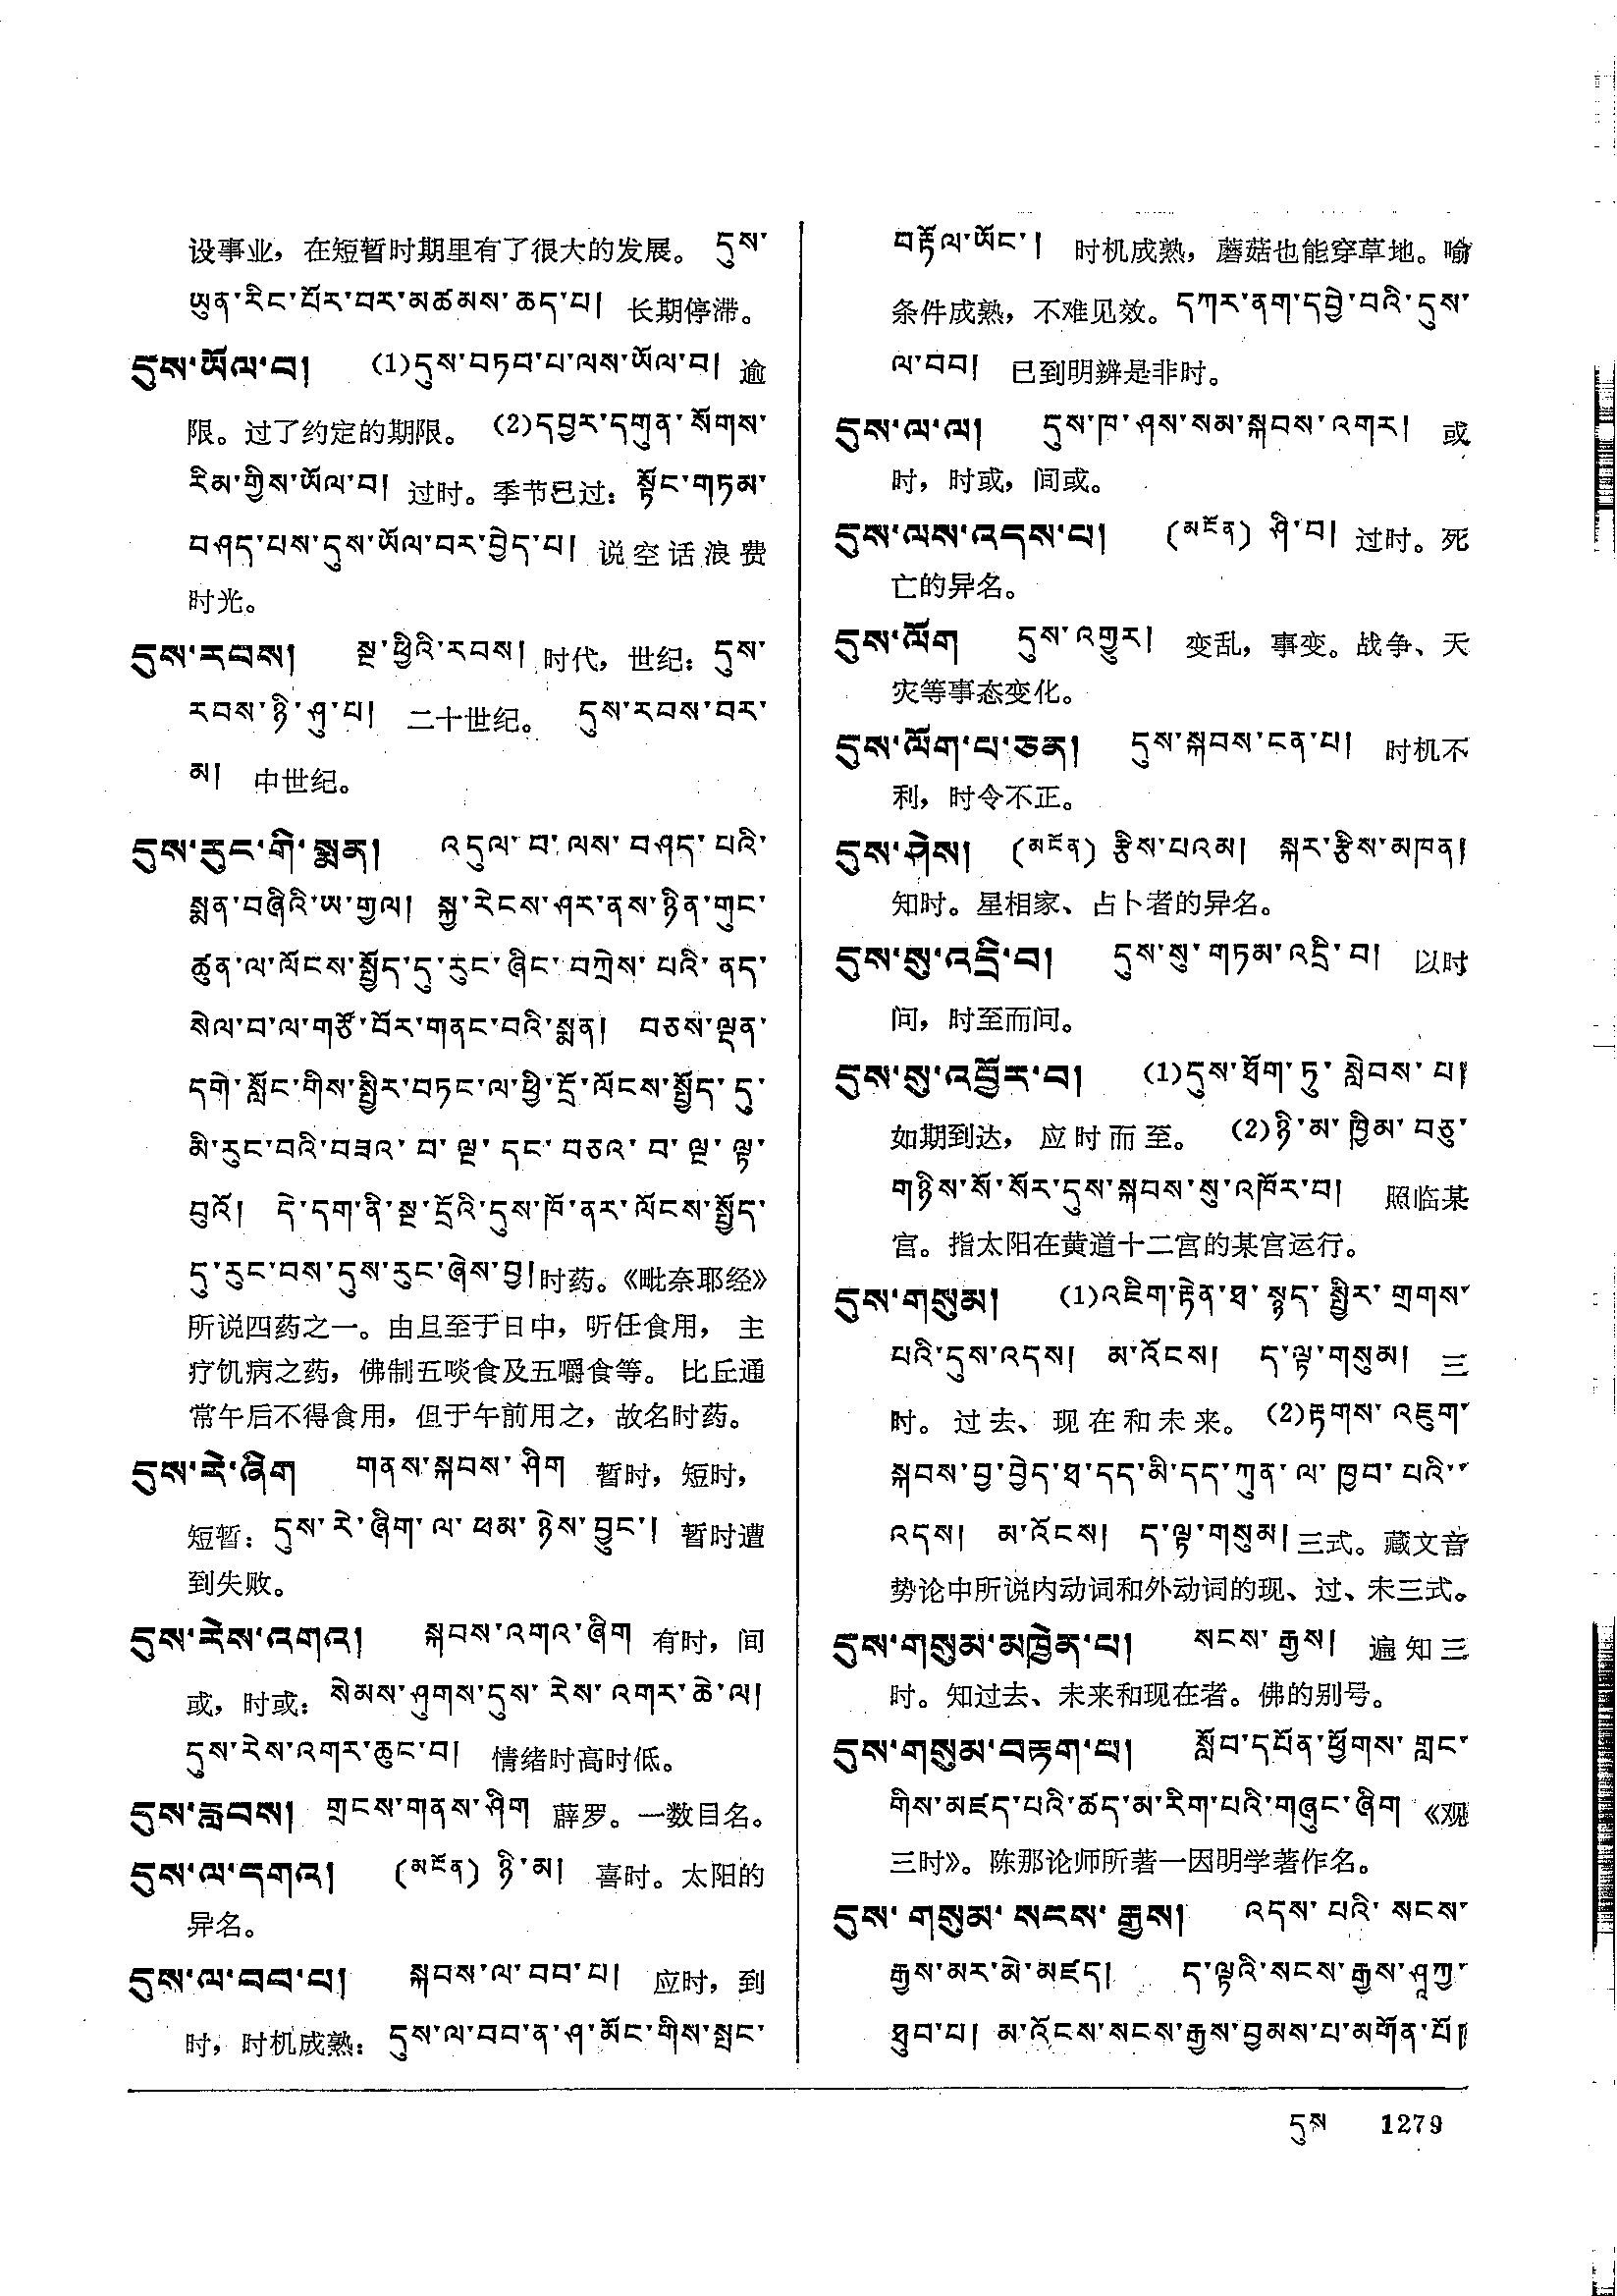 设事业，在短暂时期里有了很大的发展。 དུས་
ཡུན་རིང་པོར་བར་མཚམས་ཆད་པ། 长期停滞。
དུས་ཡོལ་བ། (1)དུས་བཏབ་པ་ལས་ཡོལ་བ། 逾
限。过了约定的期限。 (2)དབྱར་དགུན་སོགས་
རིམ་གྱིས་ཡོལ་བ། 过时。季节巴过：སྟོང་གཏམ་
བཤད་པས་དུས་ཡོལ་བར་བྱེད་པ། 说空话浪费
时光。
དུས་རབས། སྔ་ཕྱིའི་རབས། 时代，世纪：དུས་
རབས་ཉི་ཤུ་པ། 二十世纪。 དུས་རབས་བར་
མ། 中世纪。
དུས་རུང་གི་སྨན། འདུལ་བ་ལས་བཤད་པའི་
སྨན་བཞིའི་ཨ་གྱལ། སྐྱ་རེངས་ཤར་ནས་ཉིན་གུང་
ཚུན་ལ་ལོངས་སྤྱོད་དུ་རུང་ཞིང་བཀྲེས་པའི་ནད་
སེལ་བ་ལ་གཙོ་བོར་གནང་བའི་སྨན། བཅས་ལྡན་
དགེ་སློང་གིས་སྤྱིར་བཏང་ལ་ཕྱི་དྲོ་ལོངས་སྤྱོད་དུ་
མི་རུང་བའི་བཟའ་བ་ལྔ་དང་བཅའ་བ་ལྔ་ལྟ་
བུའོ། དེ་དག་ནི་སྔ་དྲོའི་དུས་ཁོ་ནར་ལོངས་སྤྱོད་
དུ་རུང་བས་དུས་རུང་ཞེས་བྱ། 时药。《毗奈耶经》
所说四药之一。由旦至于日中，听任食用， 主
疗饥病之药，佛制五啖食及五嚼食等。 比丘通
常午后不得食用，但于午前用之，故名时药。
དུས་རེ་ཞིག གནས་སྐབས་ཤིག 暂时，短时，
短暂：དུས་རེ་ཞིག་ལ་ཕམ་ཉེས་བྱུང་། 暂时遭
到失败。
དུས་རེས་འགའ། སྐབས་འགའ་ཞིག 有时，间
或，时或：སེམས་ཤུགས་དུས་རེས་འགར་ཆེ་ལ།
དུས་རེས་འགར་ཆུང་བ། 情绪时高时低。
དུས་རླབས། གྲངས་གནས་ཤིག 薜罗。一数目名。
དུས་ལ་དགའ། (མངོན) ཉི་མ། 喜时。太阳的
异名。
དུས་ལ་བབ་པ། སྐབས་ལ་བབ་པ། 应时，到
时，时机成熟：དུས་ལ་བབ་ན་ཤ་མོང་གིས་སྤང་
བརྟོལ་ཡོང་། 时机成熟，蘑菇也能穿草地。喻
条件成熟，不难见效。དཀར་ནག་དབྱེ་བའི་དུས་
ལ་བབ། 已到明辨是非时。
དུས་ལ་ལ། དུས་ཁ་ཤས་སམ་སྐབས་འགར། 或
时，时或，间或。
དུས་ལས་འདས་པ། (མངོན) ཤི་བ། 过时。死
亡的异名。
དུས་ལོག དུས་འགྱུར། 变乱，事变。战争、天
灾等事态变化。
དུས་ལོག་པ་ཅན། དུས་སྐབས་ངན་པ། 时机不
利，时令不正。
དུས་ཤེས། (མངོན) རྩིས་པའམ། སྐར་རྩིས་མཁན།
知时。星相家、占卜者的异名。
དུས་སུ་འདྲི་བ། དུས་སུ་གཏམ་འདྲི་བ། 以时
问，时至而问。
དུས་སུ་འབྱོར་བ། (1)དུས་ཐོག་ཏུ་སླེབས་པ།
如期到达，应时而至。 (2)ཉི་མ་ཁྱིམ་བཅུ་
གཉིས་སོ་སོར་དུས་སྐབས་སུ་འཁོར་བ། 照临某
宫。指太阳在黄道十二宫的某宫运行。
དུས་གསུམ། (1)འཇིག་རྟེན་ཐ་སྙད་སྤྱིར་གྲགས་
པའི་དུས་འདས། མ་འོངས། ད་ལྟ་གསུམ། 三
时。过去、现在和未来。 (2)རྟགས་འཇུག་
སྐབས་བྱ་བྱེད་ཐ་དད་མི་དད་ཀུན་ལ་ཁྱབ་པའི་
འདས། མ་འོངས། ད་ལྟ་གསུམ། 三式。藏文音
势论中所说内动词和外动词的现、过、未三式。
དུས་གསུམ་མཁྱེན་པ། སངས་རྒྱས། 遍知三
时。知过去、未来和现在者。佛的别号。
དུས་གསུམ་བརྟག་པ། སློབ་དཔོན་ཕྱོགས་གླང་
གིས་མཛད་པའི་ཚད་མ་རིག་པའི་གཞུང་ཞིག 《观
三时》。陈那论师所著一因明学著作名。
དུས་གསུམ་སངས་རྒྱས། འདས་པའི་སངས་
རྒྱས་མར་མེ་མཛད། ད་ལྟའི་སངས་རྒྱས་ཤཱཀྱ་
ཐུབ་པ། མ་འོངས་སངས་རྒྱས་བྱམས་པ་མགོན་པོ།
དུས 1279